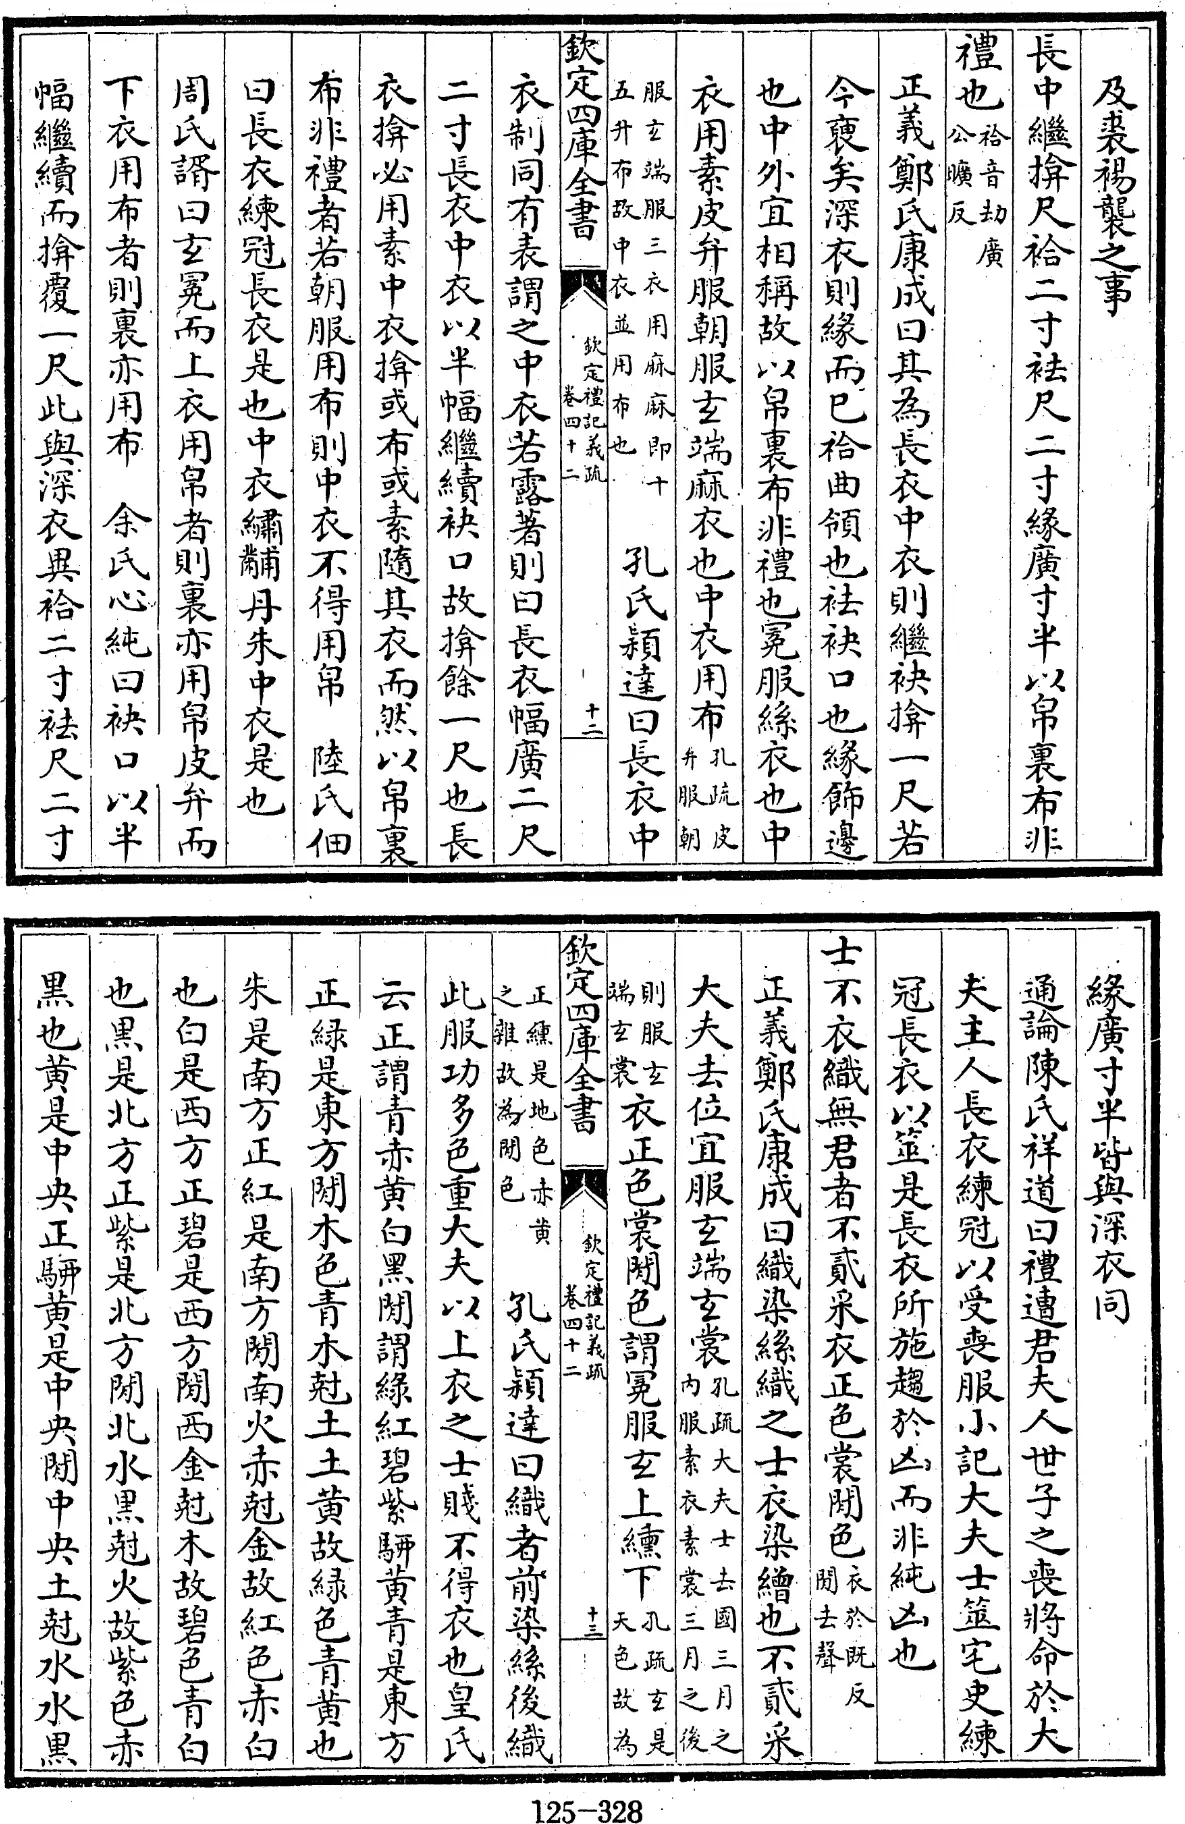 及裘裼襲之事
長中繼揜尺袷二寸袪尺二寸緣廣寸半以帛裏布非
禮也袷音劫廣公曠反
正義鄭氏康成曰其為長衣中衣則繼袂揜一尺若
今褎矣深衣則緣而已袷曲領也袪袂口也緣飾邊
也中外宜相稱故以帛裏布非禮也冕服絲衣也中
衣用素皮弁服朝服玄端麻衣也中衣用布孔疏皮弁服朝
服玄端服三衣用麻麻即十五升布故中衣並用布也 孔氏穎達曰長衣中
欽定四庫全書 欽定禮記義疏卷四十二 十二
衣制同有表謂之中衣若露著則曰長衣幅廣二尺
二寸長衣中衣以半幅繼續袂口故揜餘一尺也長
衣揜必用素中衣揜或布或素隨其衣而然以帛裏
布非禮者若朝服用布則中衣不得用帛 陸氏佃
曰長衣練冠長衣是也中衣繡黼丹朱中衣是也
周氏諝曰玄冕而上衣用帛者則裏亦用帛皮弁而
下衣用布者則裏亦用布 余氏心純曰袂口以半
幅繼續而揜覆一尺此與深衣異袷二寸袪尺二寸
緣廣寸半皆與深衣同
通論陳氏祥道曰禮遭君夫人世子之喪將命於大
夫主人長衣練冠以受喪服小記大夫士筮宅史練
冠長衣以筮是長衣所施趨於凶而非純凶也
士不衣織無君者不貳采衣正色裳閒色衣於既反閒去聲
正義鄭氏康成曰織染絲織之士衣染繒也不貳采
大夫去位宜服玄端玄裳孔疏大夫士去國三月之內服素衣素裳三月之後
則服玄端玄裳衣正色裳閒色謂冕服玄上纁下孔疏玄是天色故為
正纁是地色赤黃之雜故為閒色 孔氏穎達曰織者前染絲後織
欽定四庫全書 欽定禮記義疏卷四十二 十三
此服功多色重大夫以上衣之士賤不得衣也皇氏
云正謂青赤黃白黑閒謂綠紅碧紫騂黃青是東方
正綠是東方閒木色青木尅土土黃故綠色青黃也
朱是南方正紅是南方閒南火赤尅金故紅色赤白
也白是西方正碧是西方閒西金尅木故碧色青白
也黑是北方正紫是北方閒北水黑尅火故紫色赤
黑也黃是中央正騂黃是中央閒中央土尅水水黑
125-328